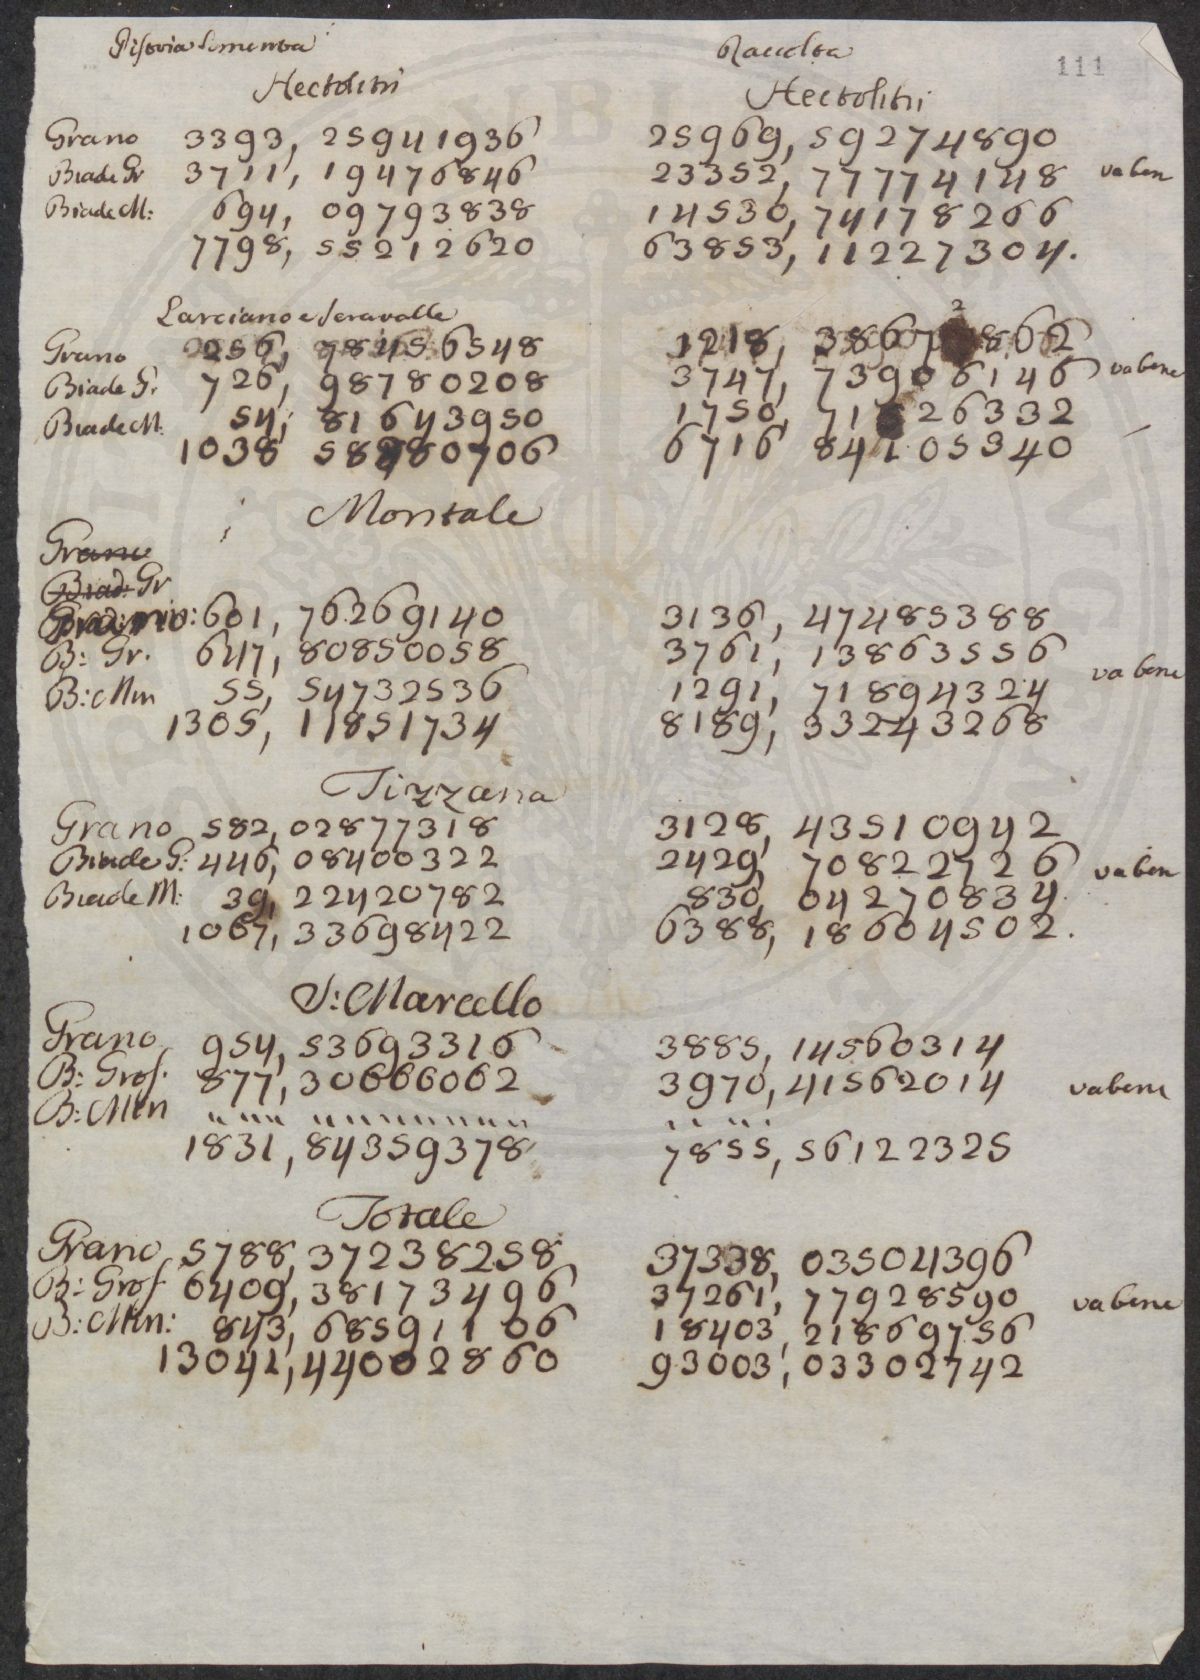 Pistoia Sementa Raccolta 111
Hectolitri Hectolitri
Grano 3393, 25941936 25969, 592774890
Biade Gr 3711, 19476846 23352, 777774148 va bene
Biade M: 694, 09793838 14530, 74178266
7798, 55212620 63853, 11227304.
Larciano e Seravalle
Grano 256, 784556548 1218, 38670 2 8662
Biade G. 726, 98780208 3747, 739906146 va bene
Biade M. 54, 81643950 1750, 71 26332
1038 58980706 6716 84105340
Montale
Grano
Biad: Gr
601, 76269140 3136, 47485388
B: Gr. 647, 80850058 3761, 13863556 va bene
B: Min 55, 54732536 1291, 71894324
1305, 11851734 8189, 33243268
Tizzana
Grano 582, 02877318 3128, 43510942
Biade G: 446, 08400322 2429, 70822726 va bene
Biade M: 39, 22420782 830, 04270834.
1067, 33698422 6388, 18604502.
S: Marcello
Grano 954, 53693316 3885, 14560314
B: Gros. 877, 30666062 3970, 41562014 va bene
B: Min
1831, 84359378 7855, 56122325
Totale
Grano 5788, 37238258 37338, 03504396
B: Gros 6409, 38173496 37261, 77928590 va bene
B: Min: 843, 68591106 18403, 21869756
13041, 44002860 93003, 03302742